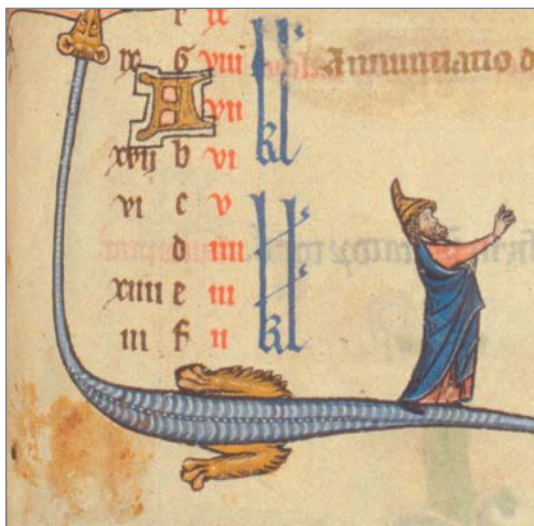 ix G viii kl Annuntiatio d
A vii
xvij b vi kl
vi c v
d iiii
xiiii e iii kl
iii f ii